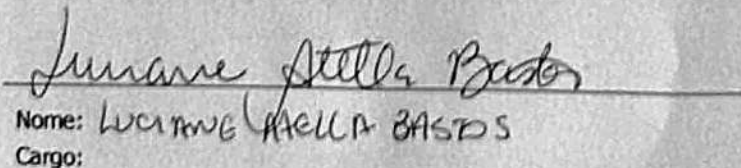 Luciane Stella Bastos
Nome: LUCIANE STELLA BASTOS
Cargo: